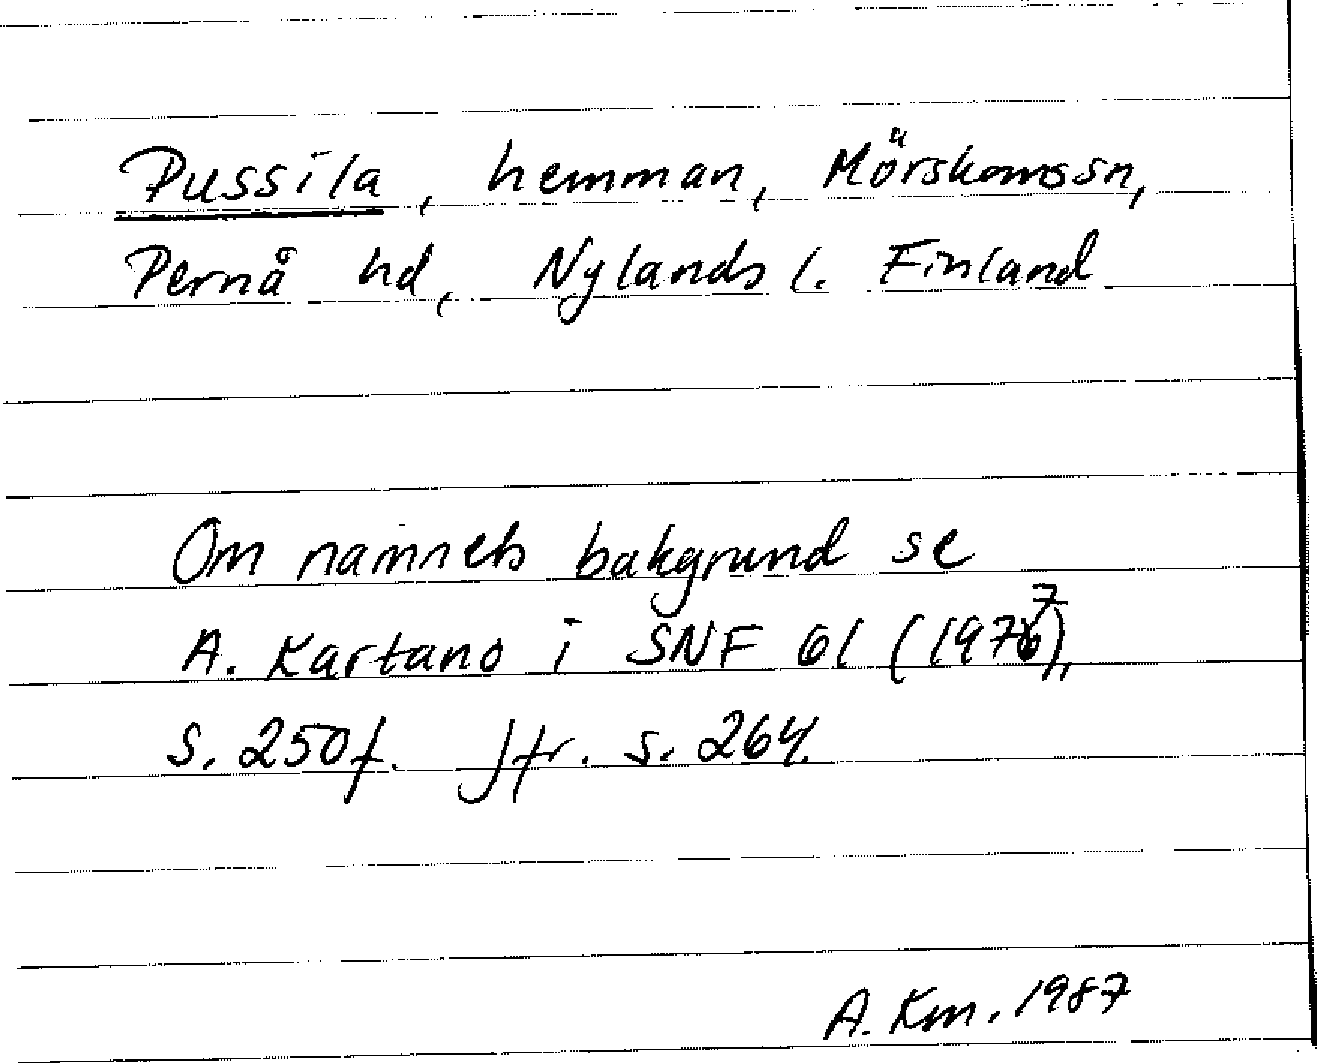 Pussila, hemman, Mörskoms sn,
Pernå hd, Nylands l. Finland
Om namnets bakgrund se
A. Kartano i SNF 61 (1977),
s. 250f. Jfr. s. 264.
A. Km. 1987